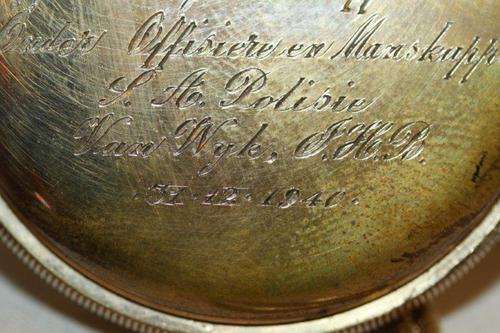 Onder Offisiere en Manskapp
S. A. Polisie
Van Wyk, J.H.B.
31·12·1940·